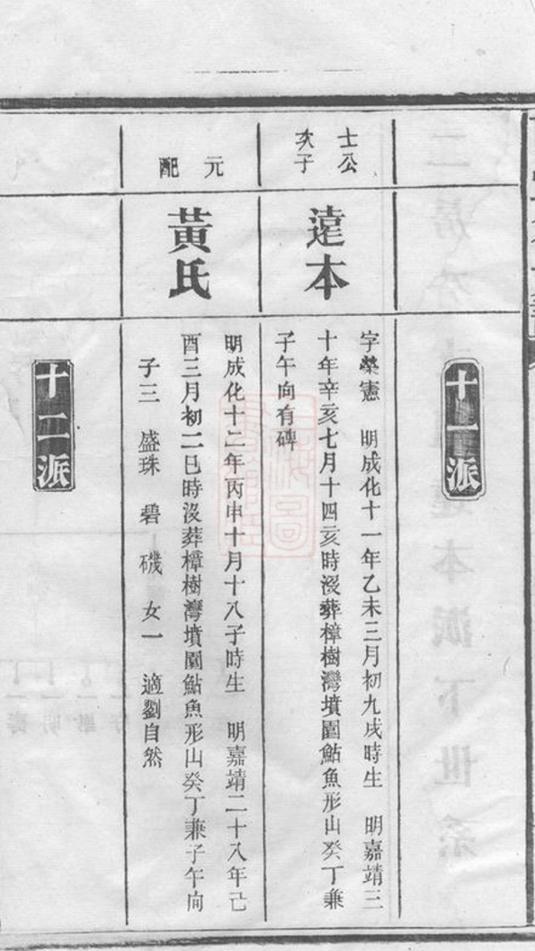 十一派
士公
次子
達本
字榮憲　明成化十一年乙未三月初九戌時生　明嘉靖三
十年辛亥七月十四亥時沒葬樟樹灣墳圍鮎魚形山癸丁兼
子午向有碑
元配
黃氏
明成化十二年丙申十月十八子時生　明嘉靖二十八年己
酉三月初二巳時沒葬樟樹灣墳圍鮎魚形山癸丁兼子午向
子三　盛珠　碧　磯　女一　適劉自然
十二派